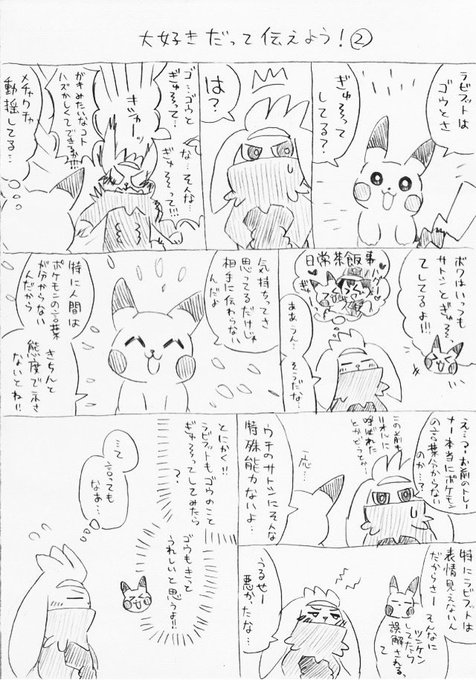 大好きだって伝えよう！②
ラビフットは
ゴウとさ
ぎゅろ〜って
してる？
は？
ゴ…ゴウと
ぎゅろ〜って
な…そんな
ぎゅろ〜って!!!
ガキみたいなコト
ハズかしくてできるか!!!
メチャクチャ
動揺してる…
ボクはいっつも
サトシとぎゅ〜
してるよ！
日常茶飯事
ああうん…そこだな…
気持ちってさ
思ってるだけじゃ
相手に伝わらない
んだよ
特に人間は
ポケモンの言葉
が分からない
んだから
きちんと
態度で示さ
ないとね!!
え…？お前のトレー
ナー本当にポケモン
の言葉分からない
のか…？
この前も
リオルに
呼ばれた
とかどうとか…
ウチのサトシにそんな
特殊能力ないよ…
一応…
特にラビフットは
表情見えないん
だからさー
そんなに
ツンケン
してたら
誤解される
て
うるせー
悪かったな…
とにかく!!
ラビフットもゴウのこと
ぎゅろ〜ってしてみたら
？
ゴウもきっと
うれしいと思うよ!!
…って
言っても
なあ…